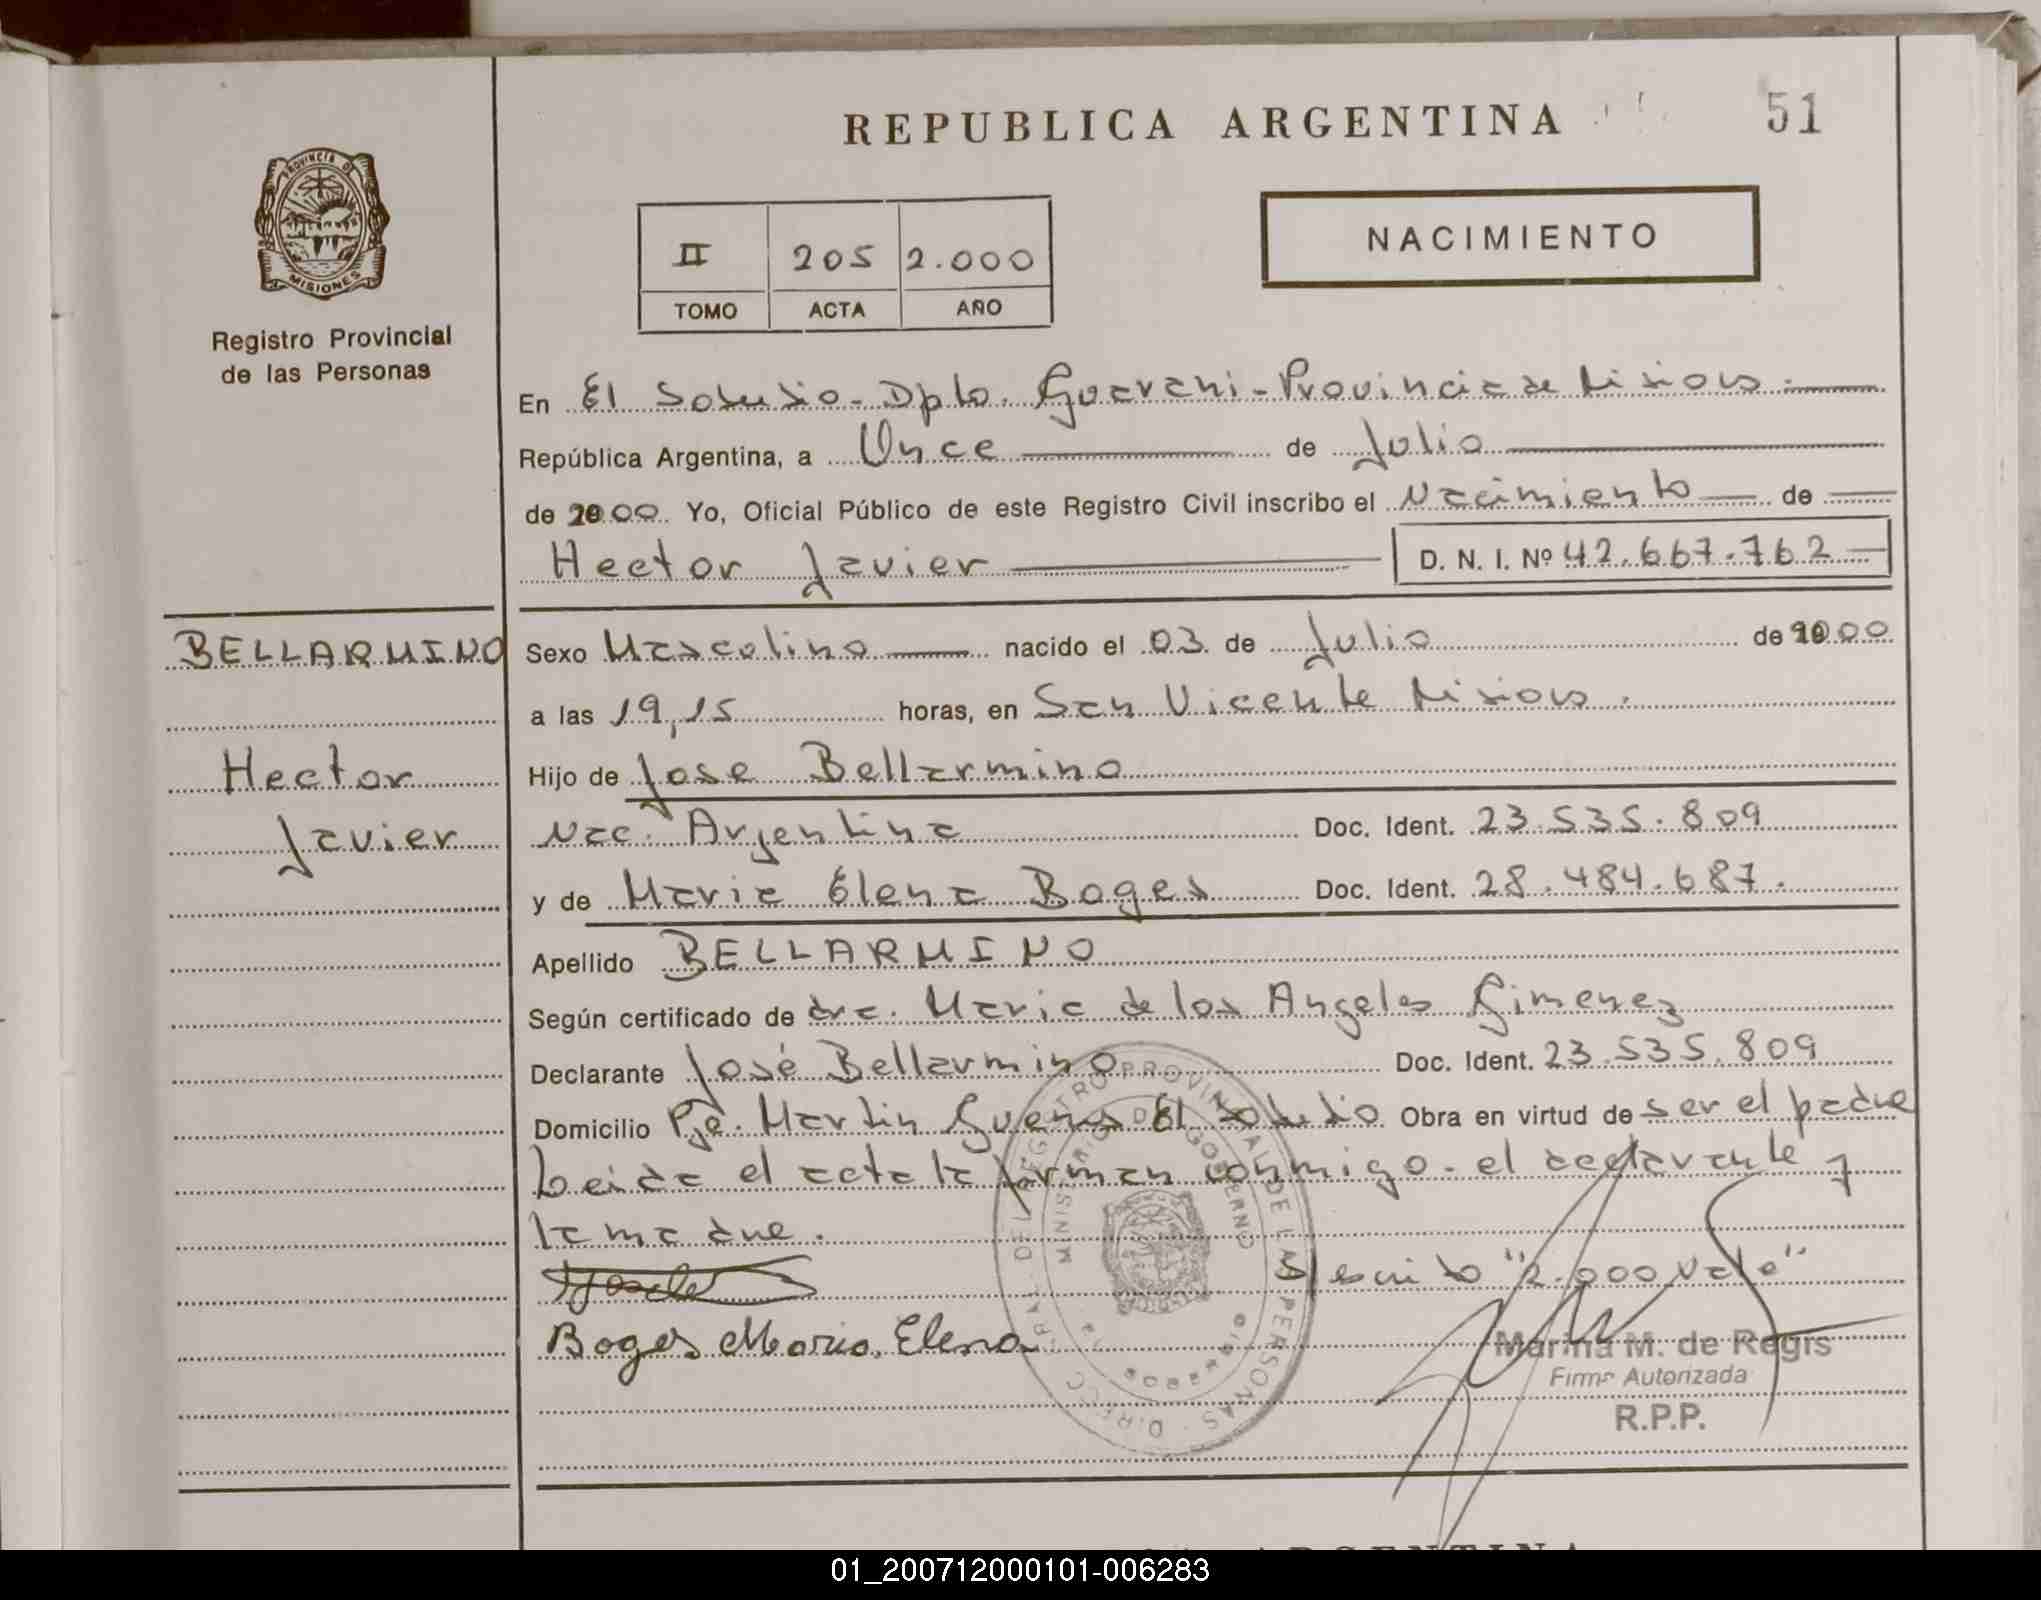 REPUBLICA ARGENTINA
51
PROVINCIA DE
MISIONES
Registro Provincial
de las Personas
II 205 2.000
TOMO ACTA AÑO
NACIMIENTO
En El Soberbio - Dpto. Guarani - Provincia de Misiones.
República Argentina, a Once de Julio
de 2000 Yo, Oficial Público de este Registro Civil inscribo el Nacimiento de
Hector Javier D. N. I. Nº 42.667.762
BELLARMINO
Hector
Javier
Sexo Masculino nacido el 03 de Julio de 2000
a las 19,15 horas, en San Vicente Misiones.
Hijo de Jose Bellarmino
Nac. Argentina Doc. Ident. 23.535.809
y de Maria Elena Boges Doc. Ident. 28.484.687.
Apellido BELLARMINO
Según certificado de dra. Maria de los Angeles Gimenez
Declarante José Bellarmino Doc. Ident. 23.535.809
Domicilio Pje. Martin Guemes El Soberbio Obra en virtud de ser el padre
Leida el acta la firman conmigo - el declarante y
la madre.
"2.000 Vale"
Boges Maria Elena
Marina M. de Regis
Firma Autorizada
R.P.P.
DIRECC. GRAL. DEL REGISTRO PROVINCIAL DE LAS PERSONAS
MINISTERIO DE GOBIERNO
01_200712000101-006283